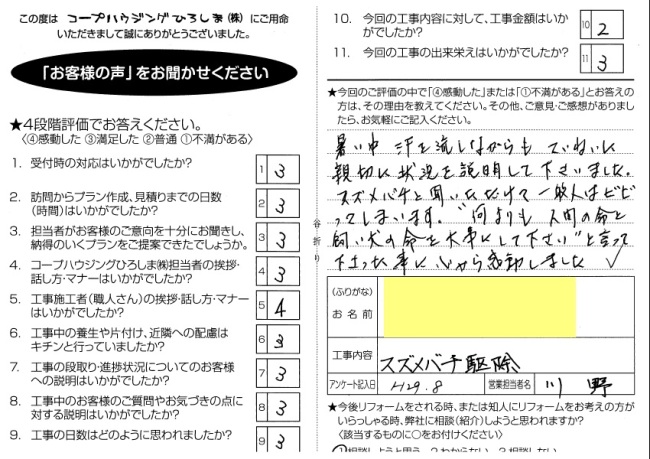 この度は コープハウジングひろしま(株) にご用命
いただきまして誠にありがとうございました。
「お客様の声」をお聞かせください
★4段階評価でお答えください。
〈④感動した ③満足した ②普通 ①不満がある〉
1. 受付時の対応はいかがでしたか?
1 3
2. 訪問からプラン作成、見積りまでの日数
(時間)はいかがでしたか?
2 3
3. 担当者がお客様のご意向を十分にお聞きし、
納得のいくプランをご提案できたでしょうか。
3 3
4. コープハウジングひろしま㈱担当者の挨拶・
話し方・マナーはいかがでしたか?
4 3
5. 工事施工者(職人さん)の挨拶・話し方・マナー
はいかがでしたか?
5 4
6. 工事中の養生や片付け、近隣への配慮は
キチンと行っていましたか?
6 3
7. 工事の段取り・進捗状況についてのお客様
への説明はいかがでしたか?
7 3
8. 工事中のお客様のご質問やお気づきの点に
対する説明はいかがでしたか?
8 3
9. 工事の日数はどのように思われましたか?
9 3
谷折り
10. 今回の工事内容に対して、工事金額はいか
がでしたか?
10 2
11. 今回の工事の出来栄えはいかがでしたか?
11 3
★今回のご評価の中で「④感動した」または「①不満がある」とお答え
の方は、その理由を教えてください。その他、ご意見・ご感想がありまし
たら、お気軽にご記入ください。
暑い中 汗を流しながらも ていねいに
親切に状況を説明して下さいました。
スズメバチと聞いただけで一般人はビビ
ってしまいます。"何よりも 人間の命と
飼い犬の命を大事にして下さい"と言って
下さった事に心から感動しました
(ふりがな)
お名前
工事内容
スズメバチ駆除
アンケート記入日 H29.8 営業担当者名 川野
★今後リフォームをされる時、または知人にリフォームをお考えの方が
いらっしゃる時、弊社に相談(紹介)しようと思われますか?
〈該当するものに○をお付けください〉
1 相談しようと思う 2.わからない 3.相談しない